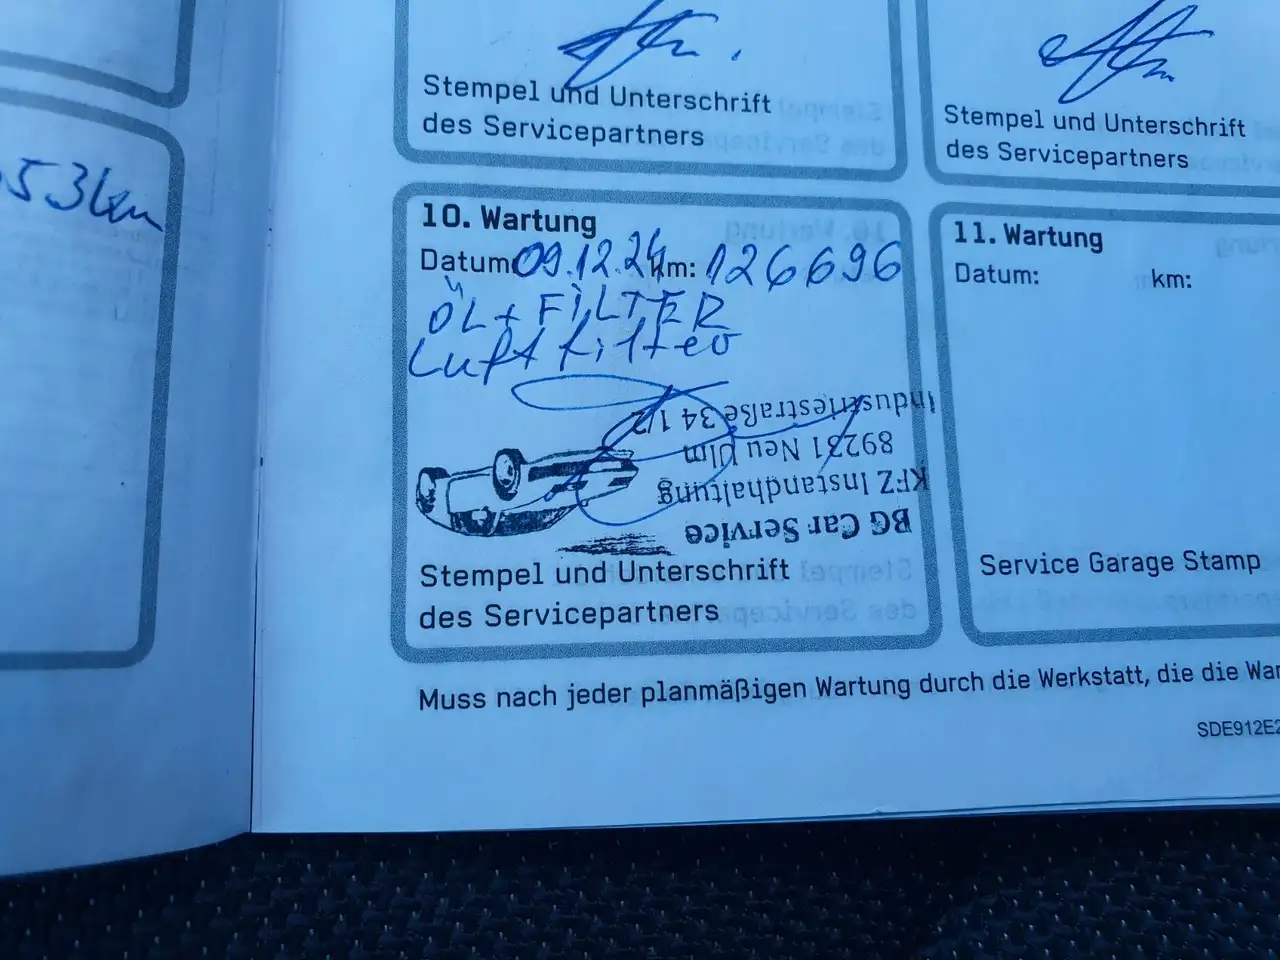 53km
Stempel und Unterschrift
des Servicepartners
Stempel und Unterschrift
des Servicepartners
10. Wartung
Datum: 09.12.24 km: 126696
ÖL + FILTER
Luftfilter
BG Car Service
KFZ Instandhaltung
89231 Neu Ulm
Industriestraße 34 1/2
Stempel und Unterschrift
des Servicepartners
11. Wartung
Datum: km:
Service Garage Stamp
Muss nach jeder planmäßigen Wartung durch die Werkstatt, die die
SDE912E2